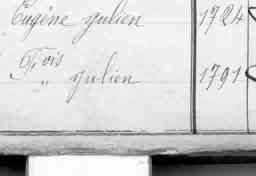 Eugène Julien 1724
Fois " Julien 1791